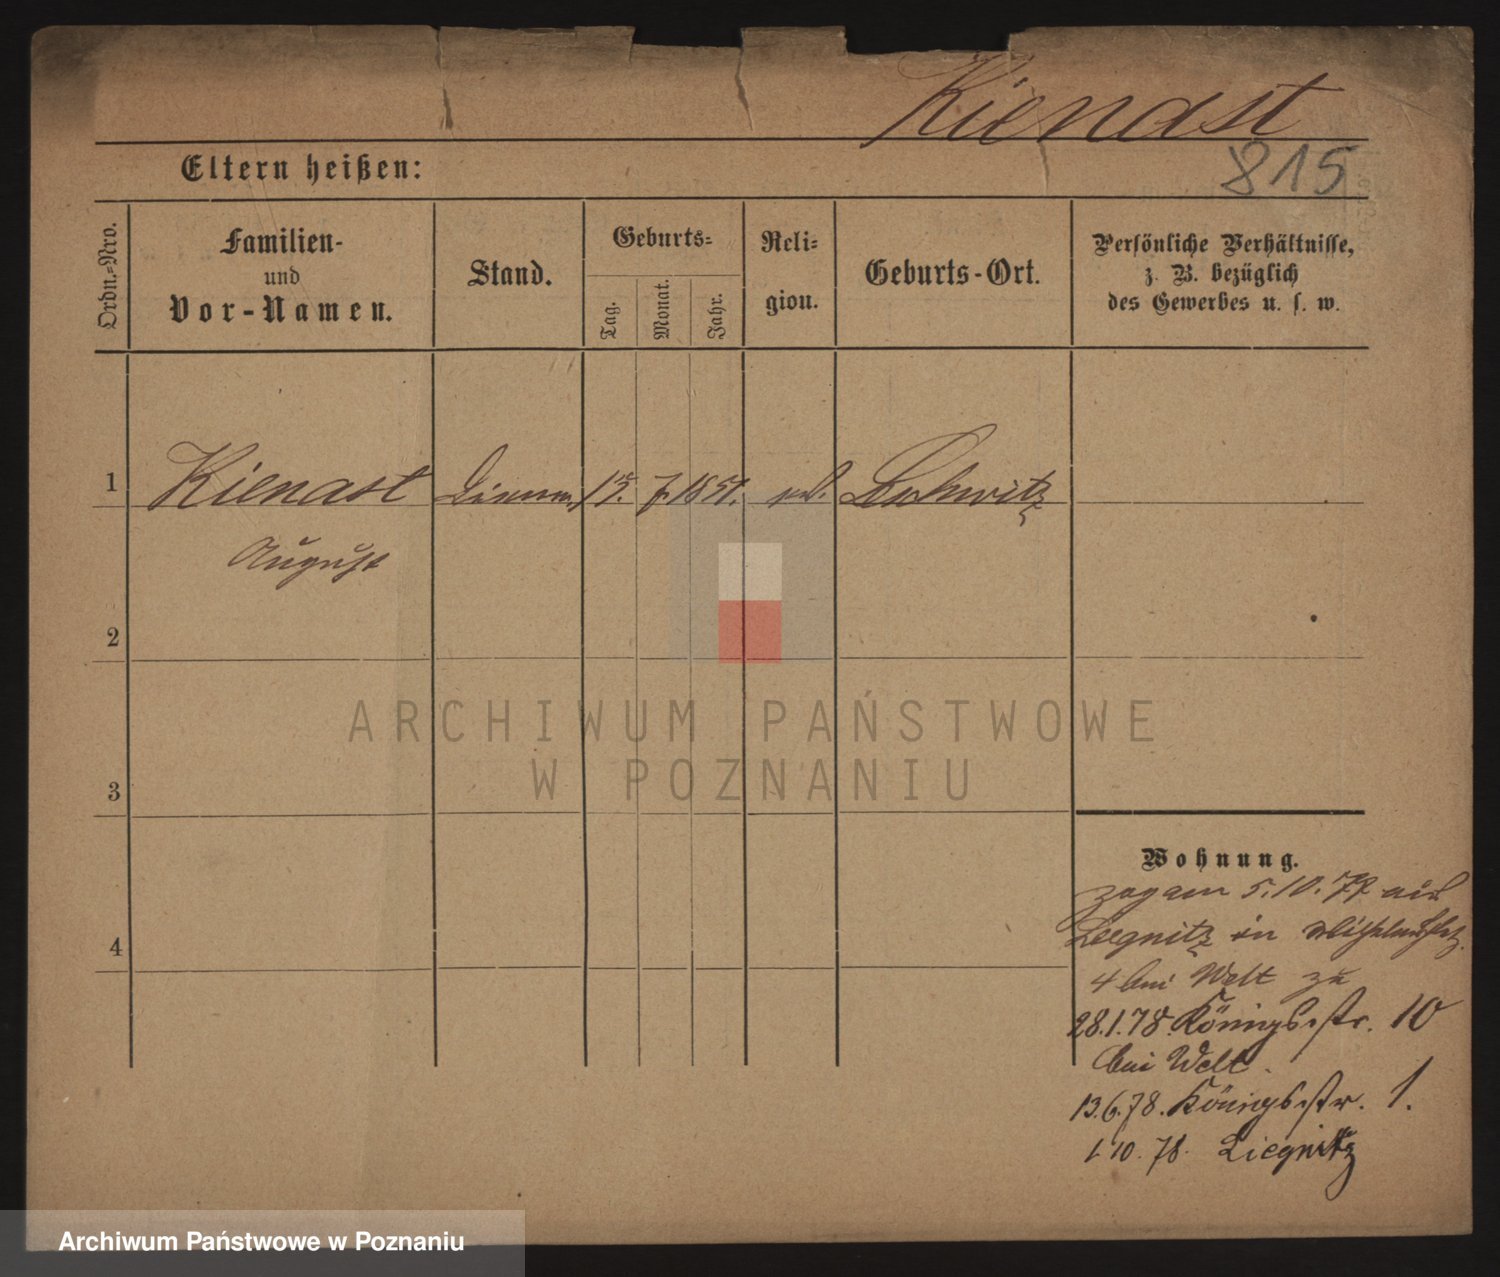 Kienast
815
Eltern heißen:
Ordn.=Nro.
Familien-
und
Vor-Namen.
Stand.
Geburts=
Tag.
Monat.
Jahr.
Reli=
gion.
Geburts-Ort.
Persönliche Verhältnisse,
z. B. bezüglich
des Gewerbes u. s. w.
1 Kienast 15. 7. 1851.
August
2
3
4
Wohnung.
zog am 5.10.77 aus
Liegnitz in
4 bei Welt zu
28.1.78. Königsstr. 10
bei Welt.
13.6.78. Königsstr. 1.
1 10. 78. Liegnitz
ARCHIWUM PAŃSTWOWE
W POZNANIU
Archiwum Państwowe w Poznaniu